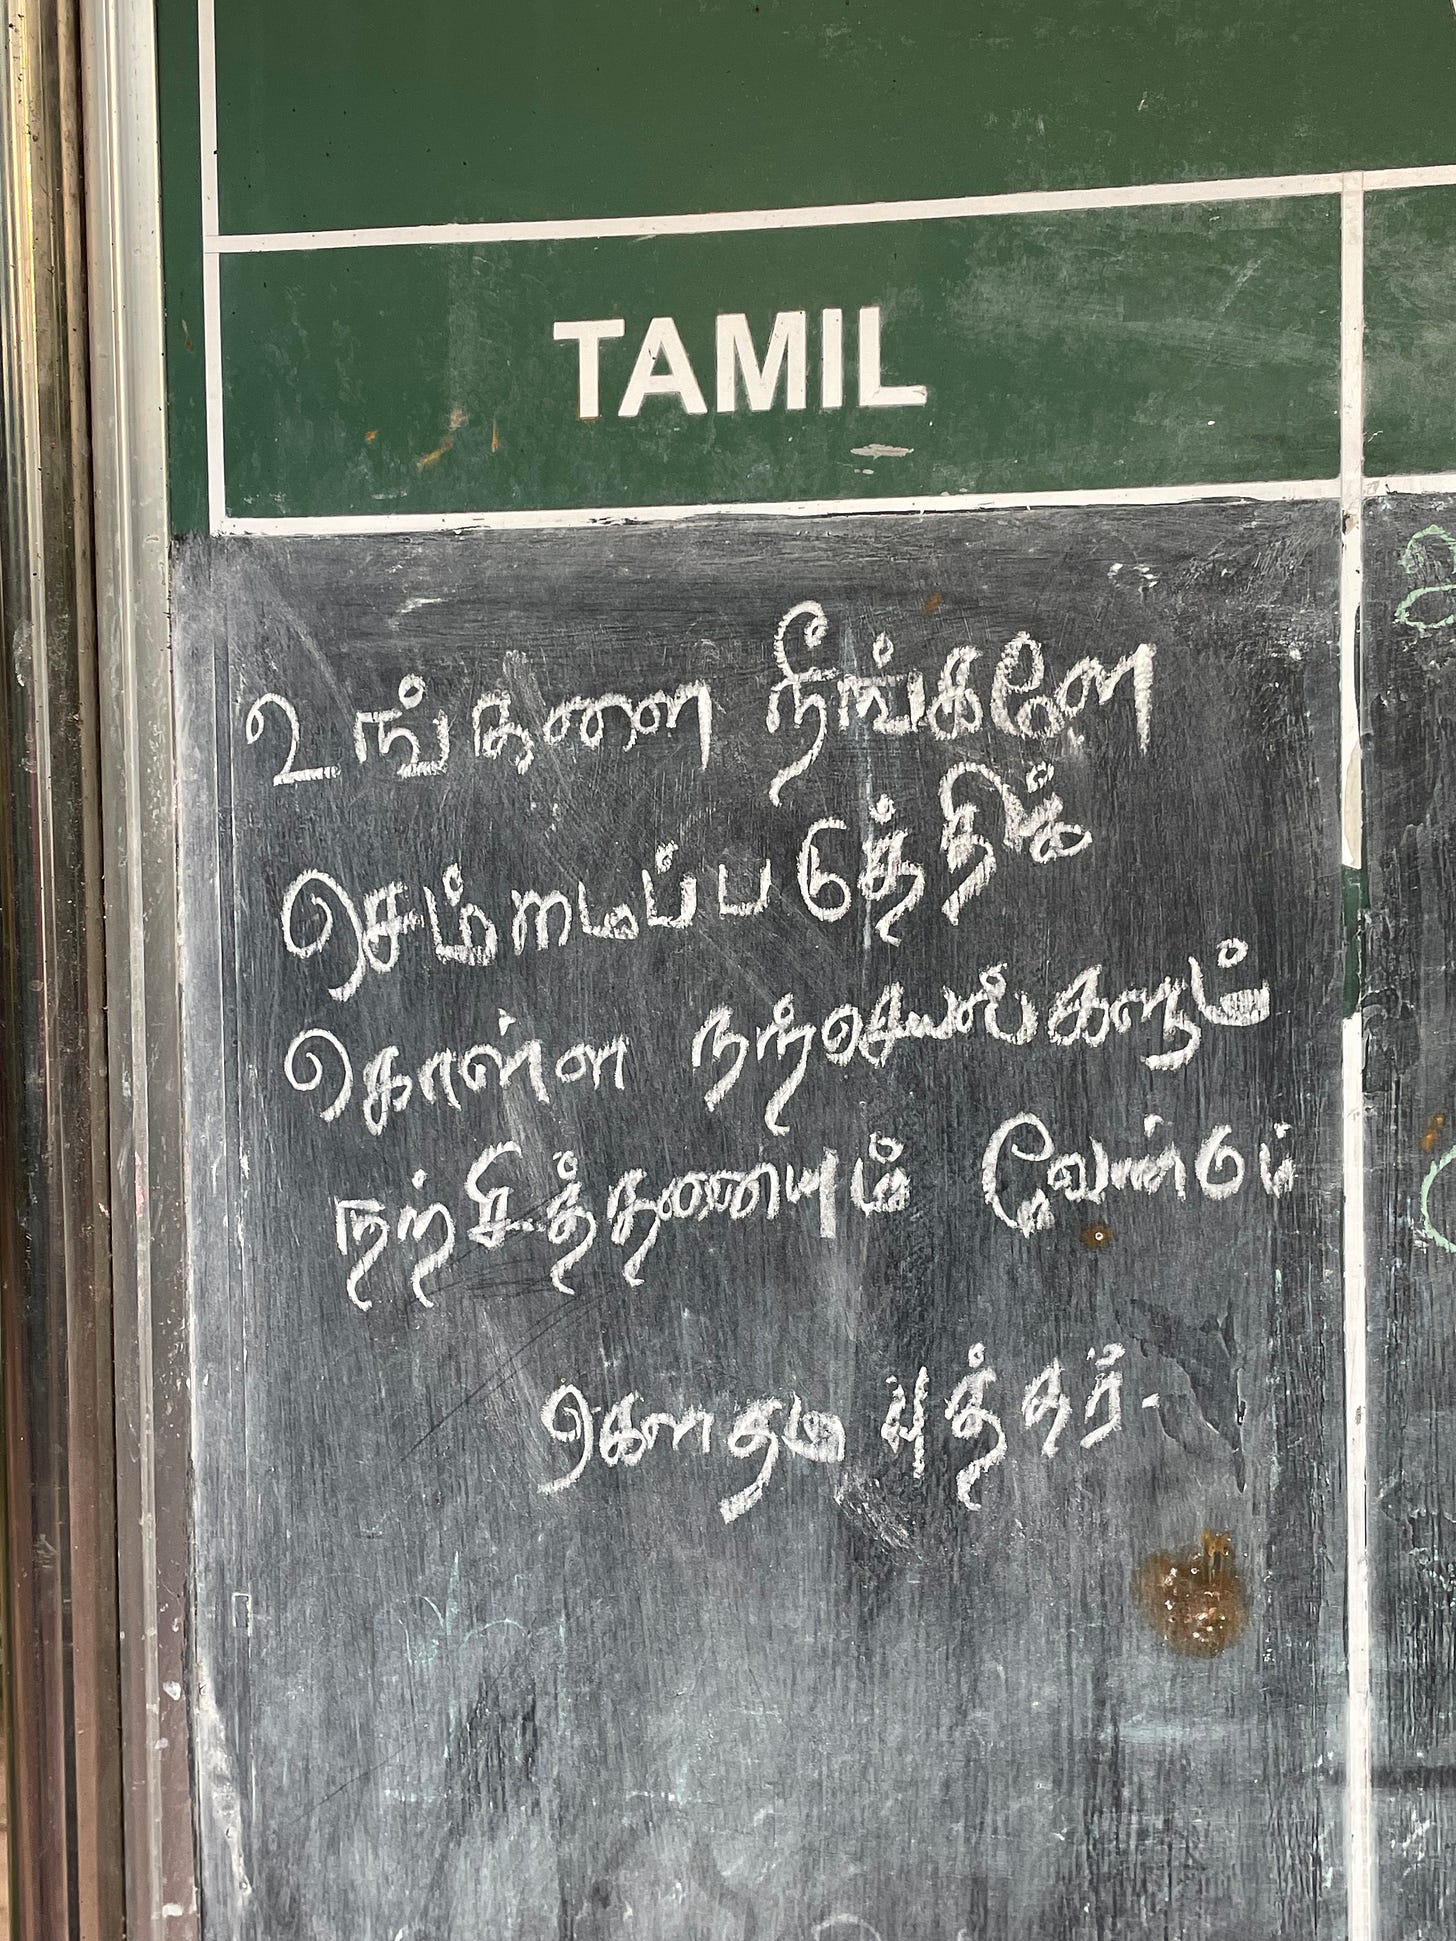 TAMIL
உங்களை நீங்களே
செம்மைப்படுத்திக்
கொள்ள நற்செயல்களும்
நற்சித்தனையும் வேண்டும்
கௌதம புத்தர்.